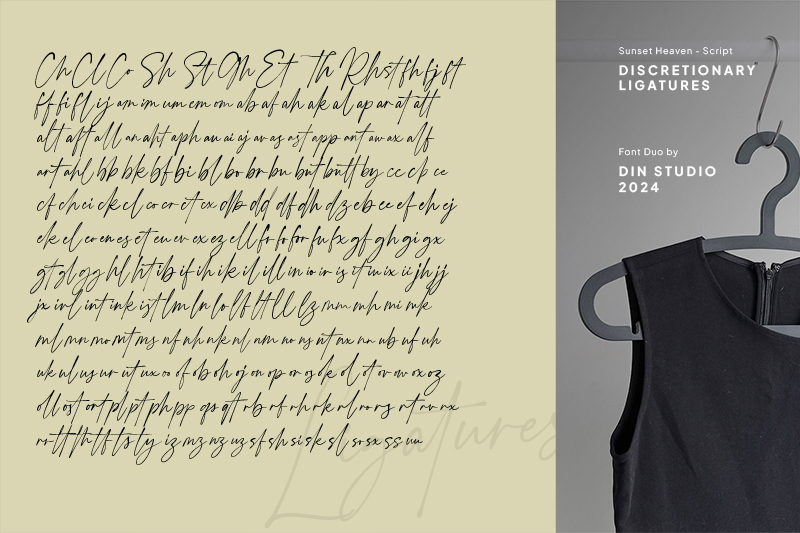 Ch Cl Co Sh St Gh Et Th Rh st fh fj ft
ff fi fl ij am im um em om ab af ah ak al ap ar at att
alt aft all an aht aph au ai aj av as ast app ant aw ax alf
art ahl bb bk bf bi bl bo br bu but butt by cc ck ce
cf ch ci ck cl co cr ct cx db dd df dh dz eb ee ef eh ej
ek el er en es et eu ev ex ez ell fr fo for fu fx gf gh gi gx
gt gl gg hl ht ib if ih ik il ill in io ir is it iu ix ii jh jj
jx irl int ink ist lm ln lo lf lt ll lz mm mh mi mk
ml mn mo mt ms nf nh nk nl nm no ns nt nx nn ub uf uh
uk ul us ur ut ux oo of ob oh oj on op or os ok ol ot ov ow ox oz
oll ost ort pl pt ph pp qs qt rb rf rh rk rl ro rs rt rv rx
rr tt th tf ts ty iz mz nz uz sf sh si sk sl so sx ss uu
Ligatures
Sunset Heaven - Script
DISCRETIONARY
LIGATURES
Font Duo by
DIN STUDIO
2024